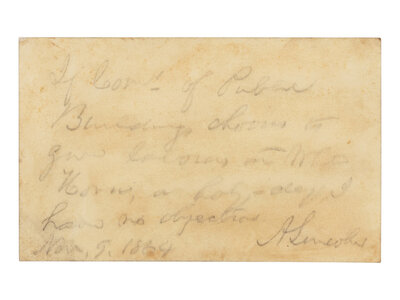 If Com.r of Public
Buildings chooses to
give laborers at White
House, a holy-day, I
have no objection
A. Lincoln
Nov. 9. 1864